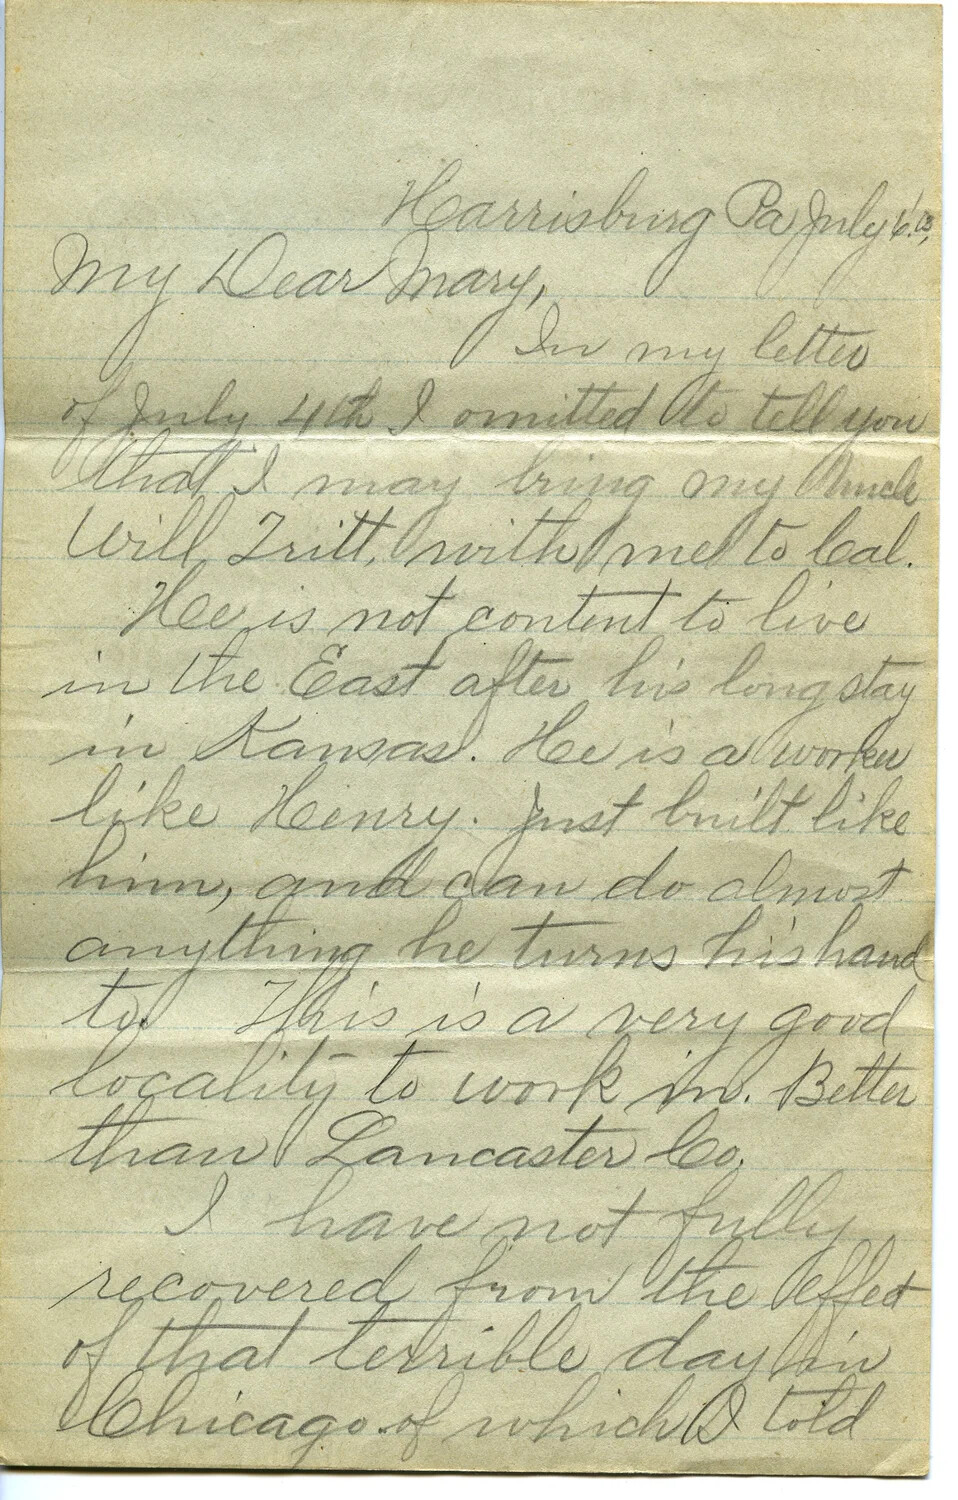 Harrisburg Pa July 6.'03,
My Dear Mary,
In my letter
of July 4th I omitted to tell you
that I may bring my Uncle
Will Tritt, with me to Cal.
He is not content to live
in the East after his long stay
in Kansas. He is a worker
like Henry. Just built like
him, and can do almost
anything he turns his hand
to. This is a very good
locality to work in. Better
than Lancaster Co.
I have not fully
recovered from the effect
of that terrible day in
Chicago of which I told